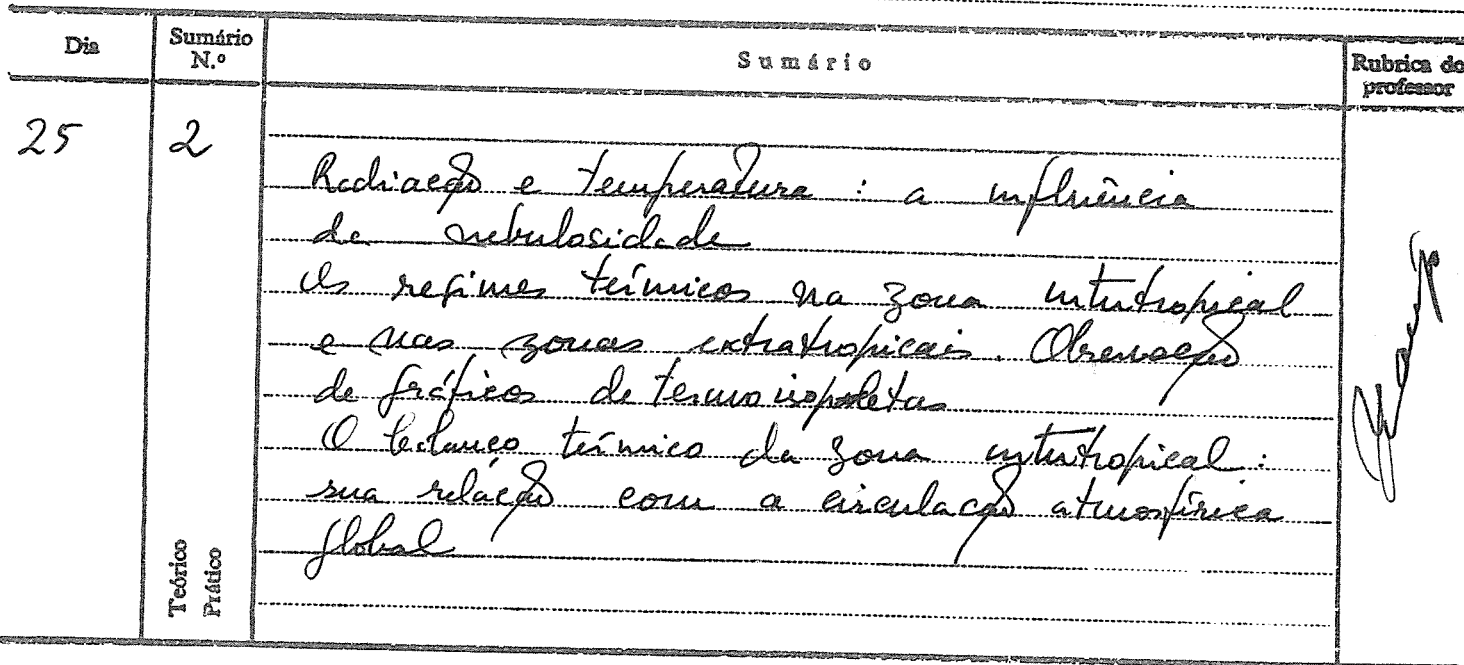 Dia
Sumário N.º
Sumário
Rubrica do professor
25
2
Radiação e temperatura : a influência
da nebulosidade
Os regimes térmicos na zona intertropical
e nas zonas extratropicais. Observação
de gráficos de termoisopletas
O balanço térmico da zona intertropical :
sua relação com a circulação atmosférica
global
Teórico
Prático